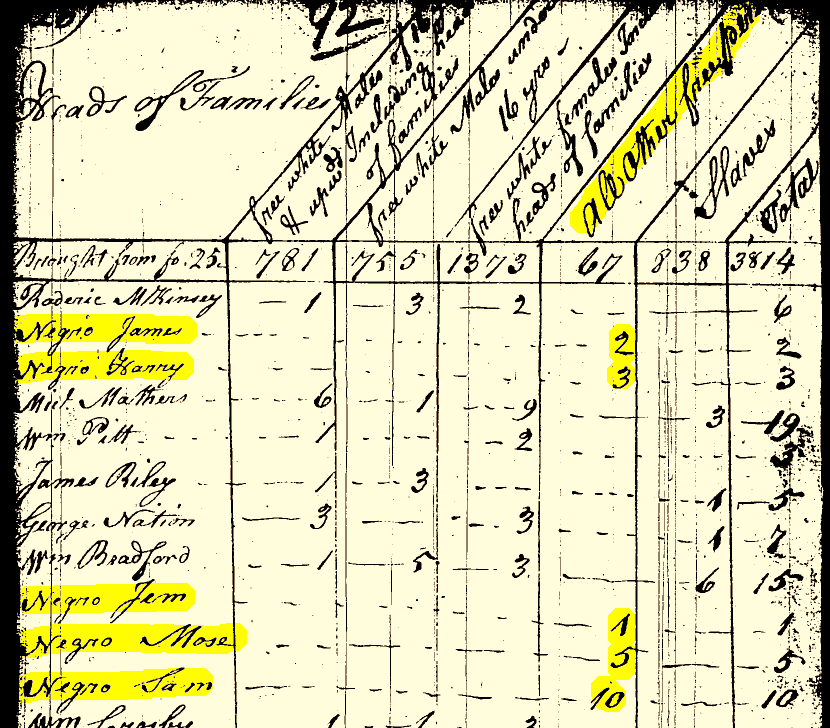 92
Heads of Families
free white Males of 16 yrs
& upwds Including heads
of families
free white Males under
16 yrs -
free white females Incl
heads of families
All other free
Slaves
Total
Brought from fo. 25. 781 755 1373 67 838 3814
Roderic McKinsey - 1 3 - 2 6
Negro James 2 2
Negro Harry 3 3
Mich. Mathers 6 1 9 3 19
Wm Pitt 1 2 3
James Riley 1 3 1 5
George Nation 3 3 1 7
Wm Bradford 1 5 3 6 15
Negro Jem 1 1
Negro Mose 5 5
Negro Sam 10 10
Wm Crosby 1 1